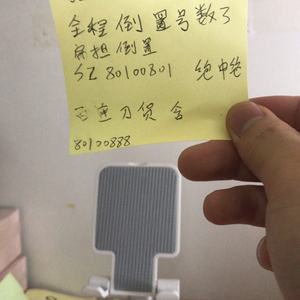 全程倒置号数了
扁担倒置
SZ 80100801 绝中绝
刀货舍
80100888